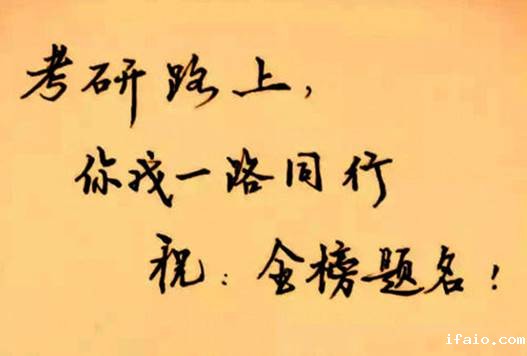 考研路上，
你我一路同行
祝：金榜题名！
ifaio.com